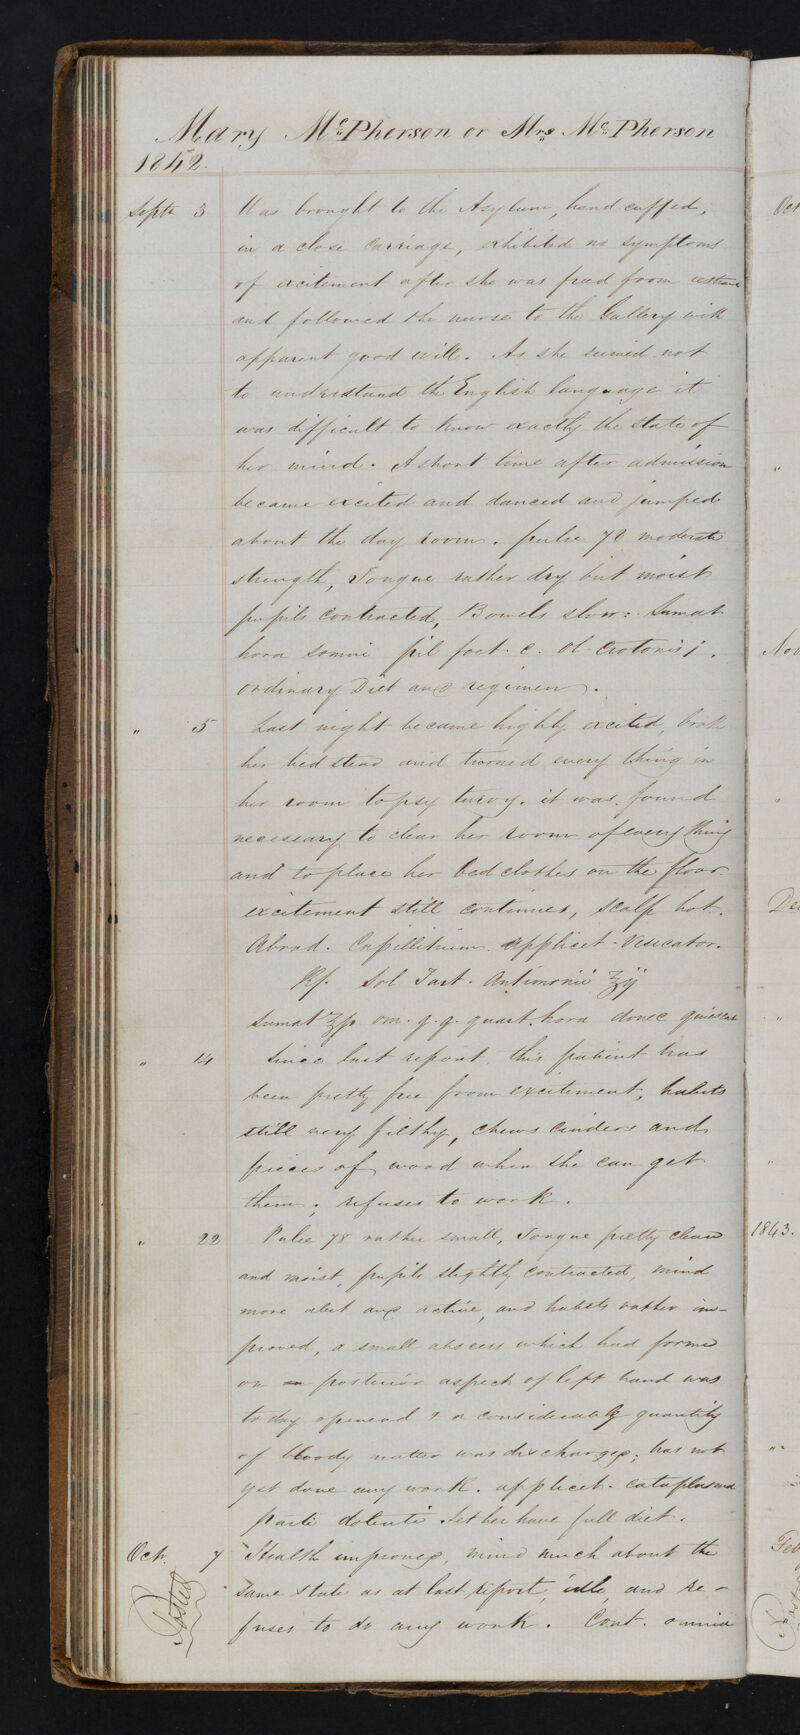 Mary McPherson or Mrs McPherson
1842.
Septr 3 Was brought to the Asylum, hand cuffed,
in a close carriage, exhibited no symptoms
of excitement after she was freed from restraint
and followed the nurse to the Gallery with
apparent good will. As she seemed not
to understand the English language it
was difficult to know exactly the state of
her mind. A short time after admission
became excited and danced and jumped
about the day room. pulse 78 moderate
strength, Tongue rather dry but moist
pupils contracted, Bowels slow: Sumat
hora somni pil foet. c. ol. Crotonis j.
ordinary Diet and regimen.
" 5 Last night became highly excited, broke
her bed stead and turned every thing in
her room topsy turvy. it was found
necessary to clear her room of every thing
and to place her bed clothes on the floor.
excitement still continues, scalp hot.
Abrad. Capillitium. applicet. Vesicator.
Rp. Sol Tart. Antimonii ℥ij
Sumat ℥ss om. q.q. quart. hora donec quiescat
" 14 Since last report this patient has
been pretty free from excitement, habits
still very filthy, chews cinders and
pieces of wood when she can get
them; refuses to work.
" 22 Pulse 78 rather small, Tongue pretty clean
and moist, pupils slightly contracted, mind
more alert and active, and habits rather im-
proved, a small abscess which had formed
on posterior aspect of left hand was
to day openend & a considerably quantity
of bloody matter was discharged; has not
yet done any work. applicet. cataplasma
parti dolenti. Let her have full diet.
Oct. 7 Health improved, mind much about the
same state as at last report, idle, and re-
fuses to do any work. Cont. omnia
Posted
Oct
"
Nov
"
Dec
"
"
1843.
"
Feb